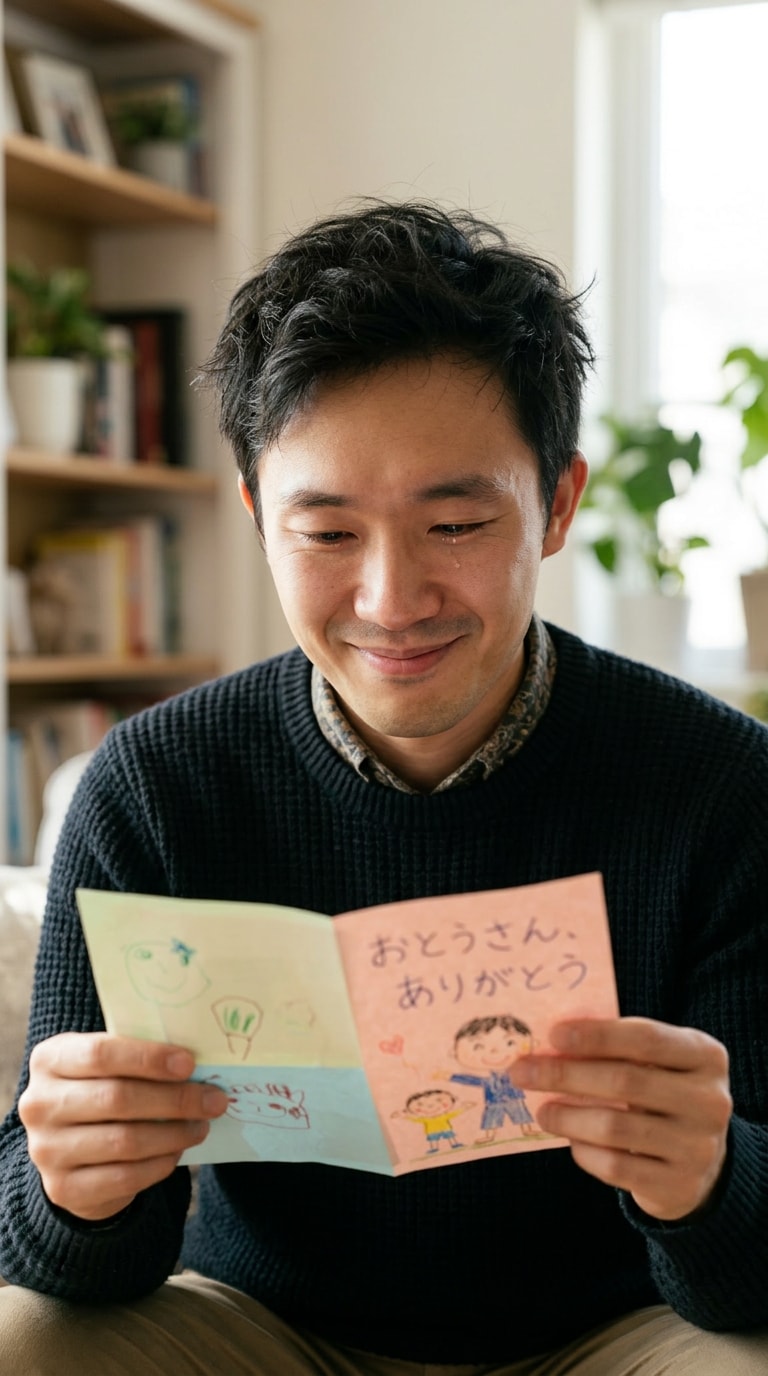 おとうさん、
ありがとう